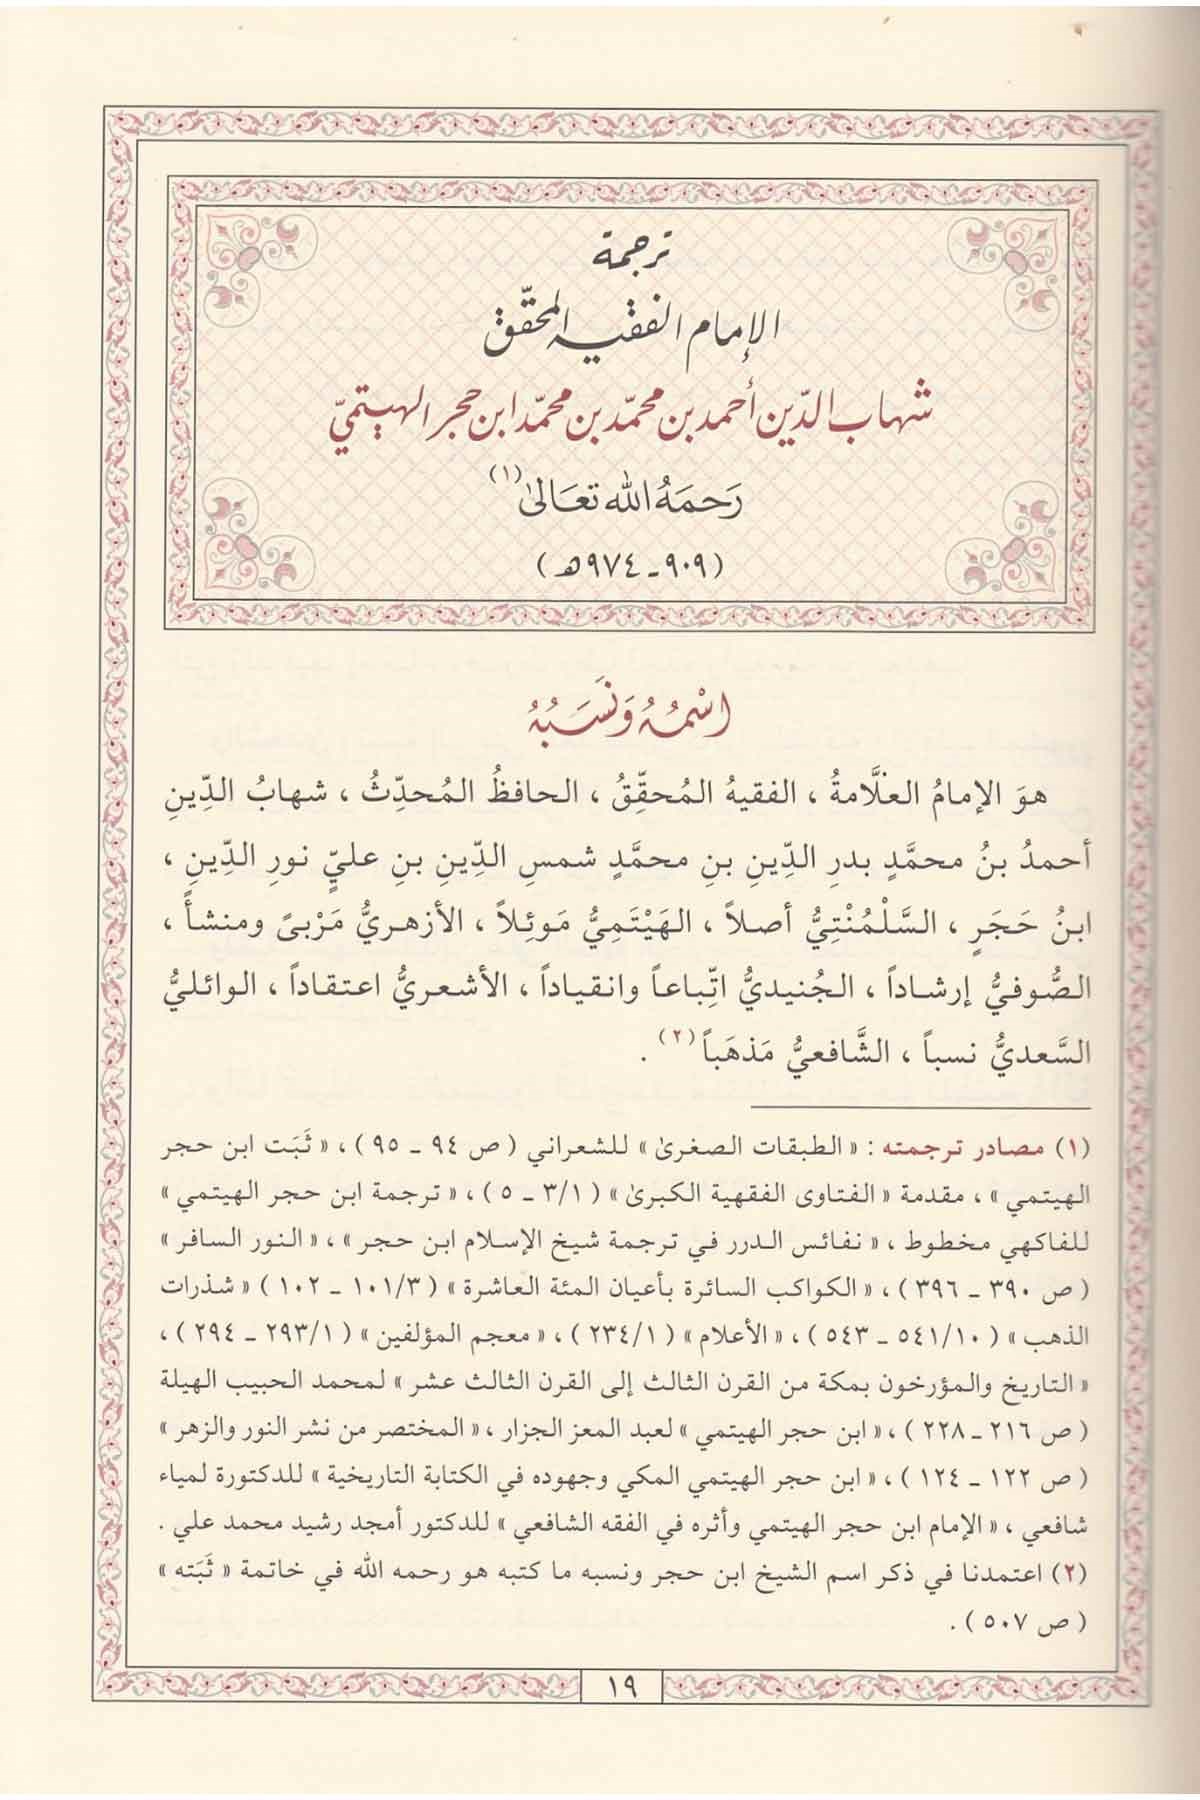 ترجمة
الإمام الفقيه المحقّق
شهاب الدّين أحمد بن محمّد بن محمّد ابن حجر الهيتميّ
رَحمَهُ الله تعَالىٰ (١)
(٩٠٩ـ ٩٧٤ هـ)
اسْمُهُ وَنَسَبُهُ
هوَ الإمامُ العلَّامةُ ، الفقيهُ المُحقِّقُ ، الحافظُ المُحدِّثُ ، شهابُ الدِّينِ
أحمدُ بنُ محمَّدٍ بدرِ الدِّينِ بنِ محمَّدٍ شمسِ الدِّينِ بنِ عليٍّ نورِ الدِّينِ ،
ابنُ حَجَرٍ ، السَّلْمُنْتِيُّ أصلاً ، الهَيْتَمِيُّ مَوئِلاً ، الأزهريُّ مَرْبىً ومنشأً ،
الصُّوفيُّ إرشاداً ، الجُنيديُّ اتِّباعاً وانقياداً ، الأشعريُّ اعتقاداً ، الوائليُّ
السَّعديُّ نسباً ، الشَّافعيُّ مَذهَباً (٢) .
(١) مصادر ترجمته : « الطبقات الصغرىٰ » للشعراني ( ص ٩٤ ـ ٩٥ ) ، « ثَبَت ابن حجر
الهيتمي » ، مقدمة « الفتاوى الفقهية الكبرىٰ » ( ٣/١ ـ ٥ ) ، « ترجمة ابن حجر الهيتمي »
للفاكهي مخطوط ، « نفائس الدرر في ترجمة شيخ الإسلام ابن حجر » ، « النور السافر »
( ص ٣٩٠ ـ ٣٩٦ ) ، « الكواكب السائرة بأعيان المئة العاشرة » ( ١٠١/٣ ـ ١٠٢ ) « شذرات
الذهب » ( ٥٤١/١٠ ـ ٥٤٣ ) ، « الأعلام » ( ٢٣٤/١ ) ، « معجم المؤلفين » ( ٢٩٣/١ ـ ٢٩٤ ) ،
« التاريخ والمؤرخون بمكة من القرن الثالث إلى القرن الثالث عشر » لمحمد الحبيب الهيلة
( ص ٢١٦ ـ ٢٢٨ ) ، « ابن حجر الهيتمي » لعبد المعز الجزار ، « المختصر من نشر النور والزهر »
( ص ١٢٢ ـ ١٢٤ ) ، « ابن حجر الهيتمي المكي وجهوده في الكتابة التاريخية » للدكتورة لمياء
شافعي ، « الإمام ابن حجر الهيتمي وأثره في الفقه الشافعي » للدكتور أمجد رشيد محمد علي .
(٢) اعتمدنا في ذكر اسم الشيخ ابن حجر ونسبه ما كتبه هو رحمه الله في خاتمة « ثَبَته »
( ص ٥٠٧ ) .
١٩